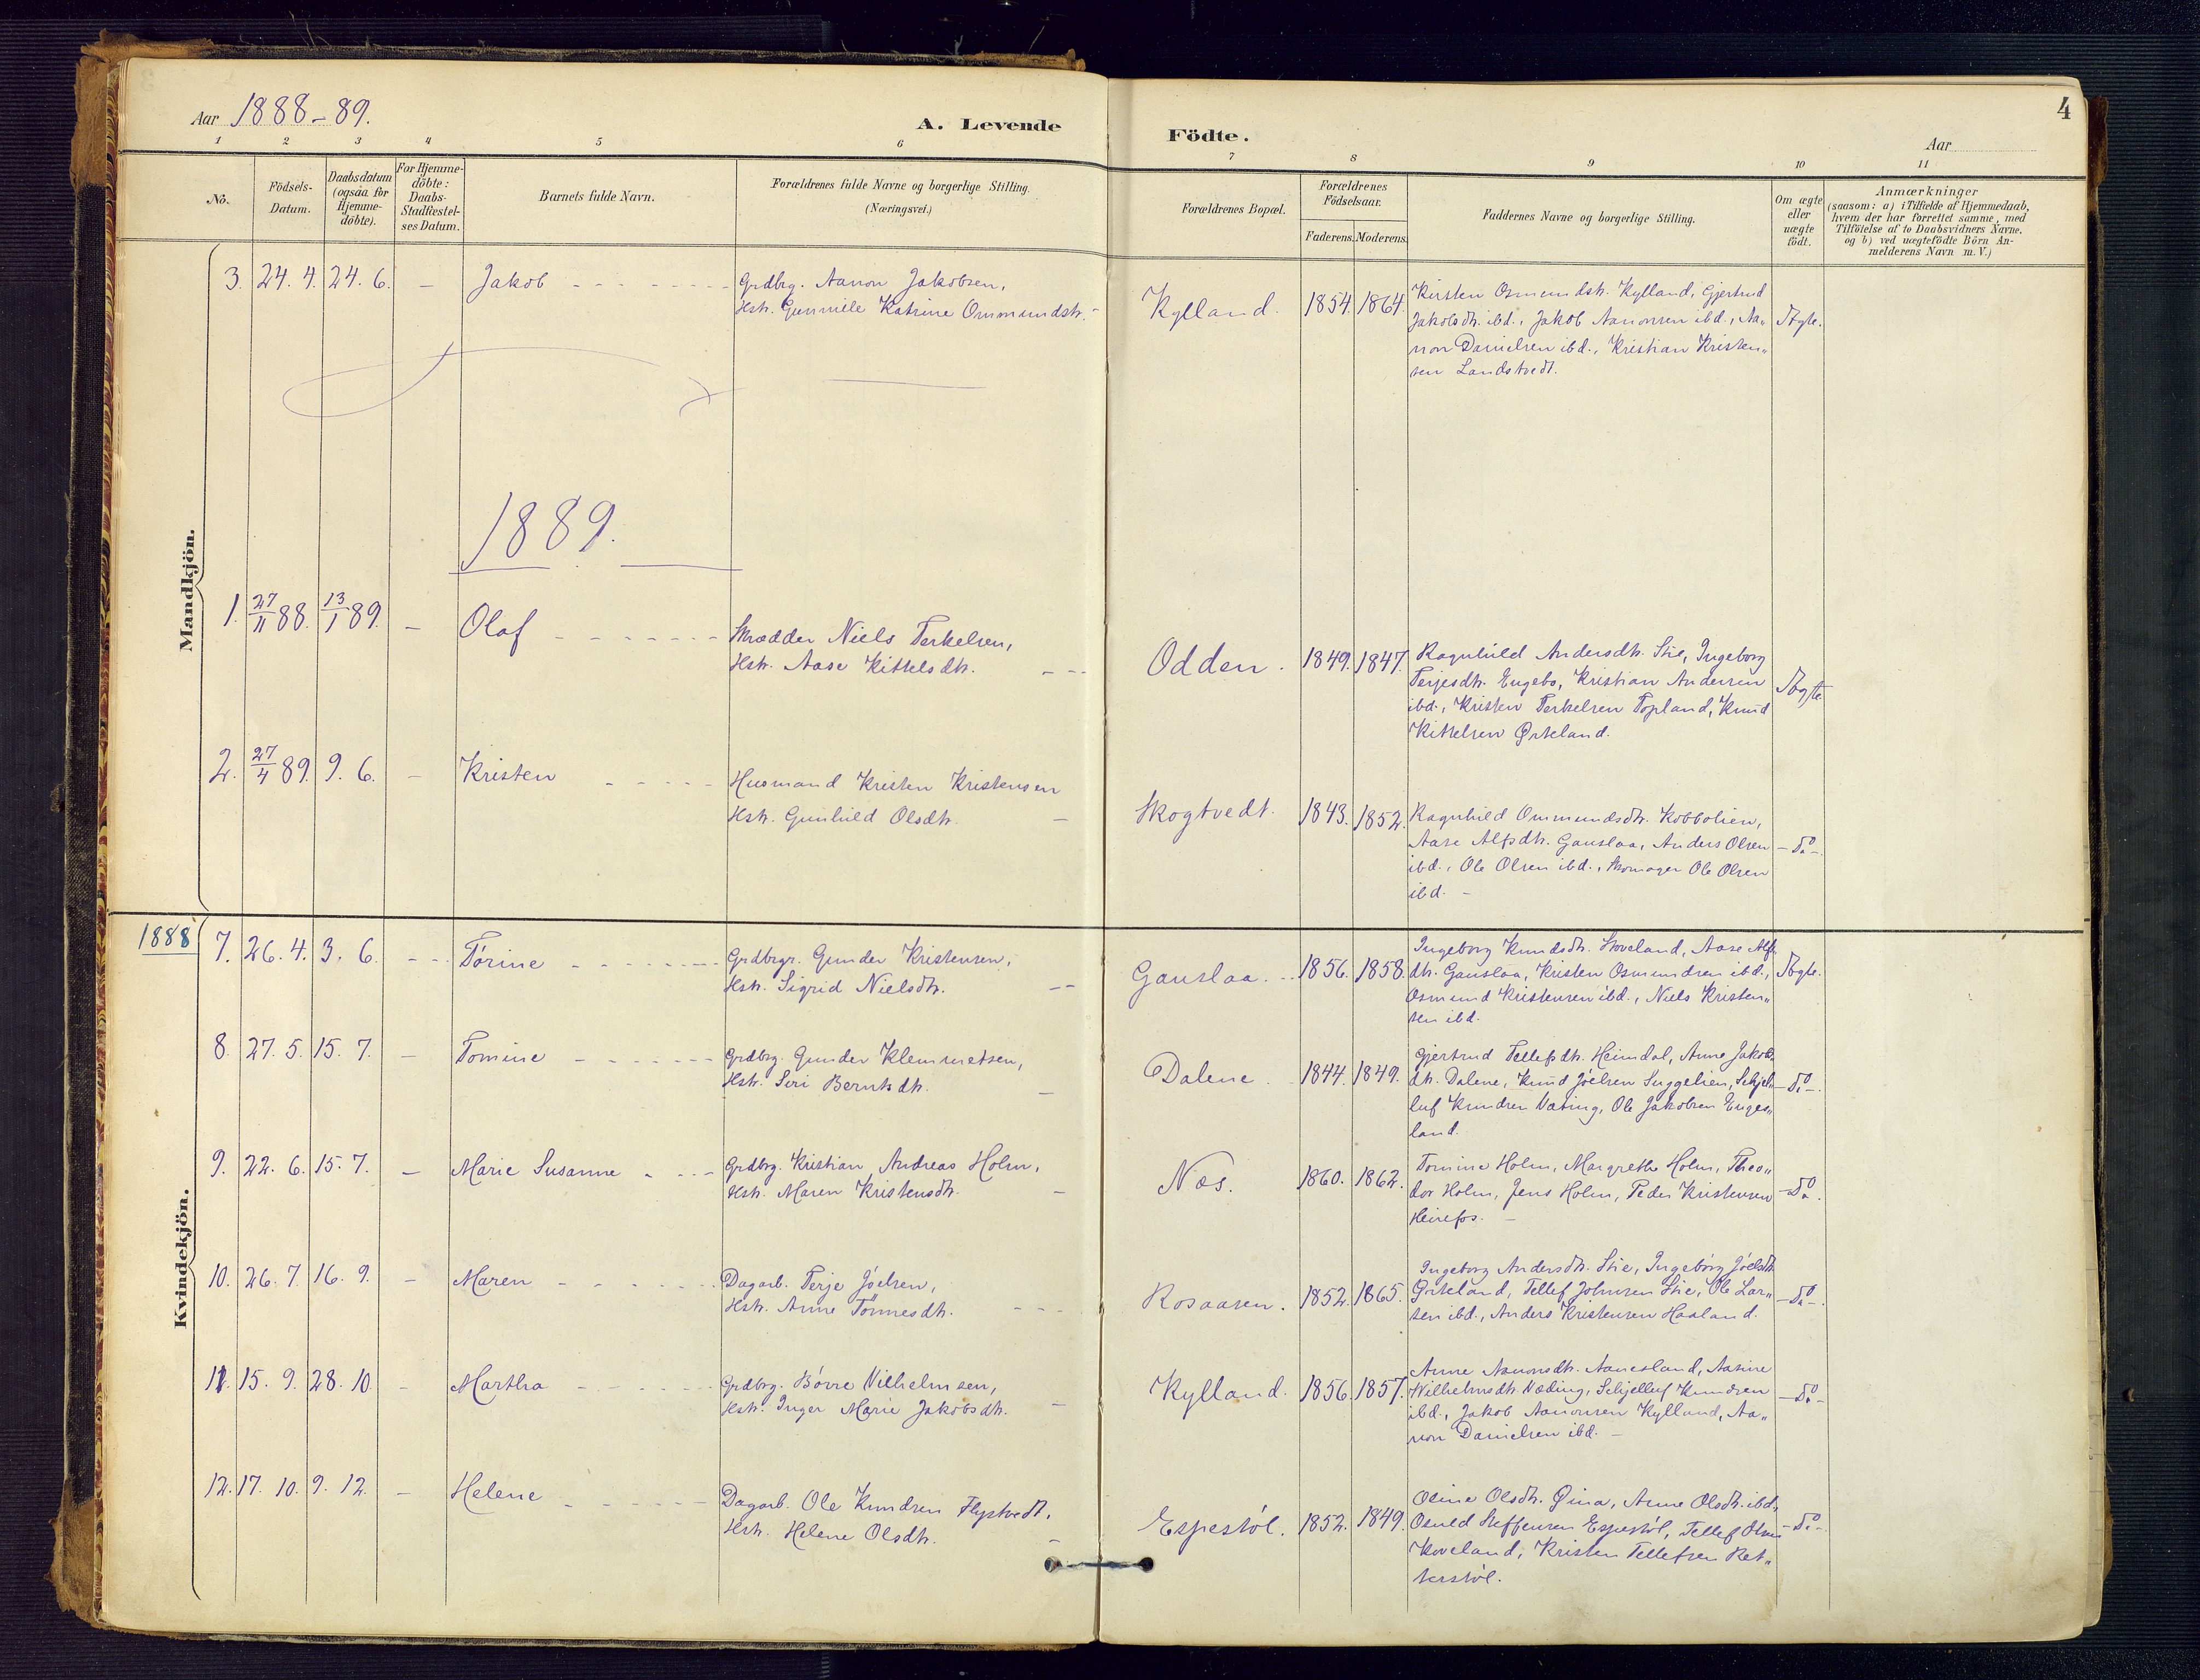 4
Aar 1888-89.
A. Levende
Födte.
Aar
1 2 3 4 5 6 7 8 9 10 11
No.
Födsels-
Datum.
Daabsdatum
(ogsaa for
Hjemme-
döbte).
For Hjemme-
döbte:
Daabs-
Stadfæstel-
ses Datum.
Barnets fulde Navn.
Forældrenes fulde Navne og borgerlige Stilling.
(Næringsvei.)
Forældrenes Bopæl.
Forældrenes
Födselsaar.
Faderens. Moderens.
Faddernes Navne og borgerlige Stilling.
Om ægte
eller
uægte
födt.
Anmærkninger
(saasom: a) i Tilfælde af Hjemmedaab,
hvem der har forrettet samme, med
Tilföielse af to Daabsvidners Navne.
og b) ved uægtefödte Börn An-
melderens Navn m.V.)
Mandkjön.
3. 24. 4. 24. 6. - Jakob
Grdbrg. Aanon Jakobsen,
Hstr. Gunnile Katrine Ommundsdtr. -
Kylland. 1854. 1864.
Kirsten Osmundsdtr. Kylland, Gjertrud
Jakobsdtr. ibd., Jakob Aanonsen ibd., Aa„
non Danielsen ibd., Kristian Kristen„
sen Landstvedt.
Ægte.
1889.
1. 27/11 88. 13/1 89. - Olaf
Skrædder Niels Terkelsen,
Hstr. Aase Kittelsdtr.
Odden. 1849. 1847.
Ragnhild Andersdtr. Stie, Ingeborg
Terjesdtr. Engebo, Kristian Andersen
ibd., Kristen Terkelsen Topland, Knud
Kittelsen Ørteland.
Ægte
2. 27/4 89. 9. 6. - Kristen
Husmand Kristen Kristensen
Hstr. Gunhild Olsdtr. -
Skogtvedt. 1843. 1852.
Ragnhild Ommundsdtr. Kobbolien,
Aase Alfsdtr. Gauslaa, Anders Olsen
ibd., Ole Olsen ibd., Skomager Ole Olsen
ibd. -
- do -
1888
Kvindekjön.
7. 26. 4. 3. 6. - Törine
Grdbrgr. Gunder Kristensen,
Hstr. Sigrid Nielsdtr.
Gauslaa. 1856. 1858.
Ingeborg Knudsdtr. Skoveland, Aase Alfs„
dtr. Gauslaa, Kristen Osmundsen ibd.,
Osmund Kristensen ibd., Niels Kristen„
sen ibd.
Ægte.
8. 27. 5. 15. 7. - Tomine
Grdbrg. Gunder Klemmetsen,
Hstr. Siri Berntsdtr. -
Dalene. 1844. 1849.
Gjertrud Tellefsdtr. Heimdal, Anne Jakobs„
dtr. Dalene, Knud Jöelsen Suggelien, Schjel„
luf Knudsen Væting, Ole Jakobsen Enges„
land.
- do -
9. 22. 6. 15. 7. - Marie Susanne
Grdbrg. Kristian Andreas Holm,
Hstr. Maren Kristensdtr. -
Næs. 1860. 1862.
Tomine Holm, Margrethe Holm, Theo„
dor Holm, Jens Holm, Peder Kristensen
Heirefos. -
- do.
10. 26. 7. 16. 9. - Maren
Dagarb. Terje Jöelsen,
Hstr. Anne Tönnesdtr.
Rosaasen. 1852. 1865.
Ingeborg Andersdtr. Stie, Ingeborg Jöelsdtr.
Ørteland, Tellef Johnsen Stie, Ole Lar„
sen ibd., Anders Kristensen Haaland.
- do -.
11. 15. 9. 28. 10. - Martha
Grdbrg. Börre Vilhelmsen,
Hstr. Inger Marie Jakobsdtr. -
Kylland. 1856. 1857.
Anne Aanonsdtr. Aanesland, Aasine
Wilhelmsdtr. Væding, Schjelluf Knudsen
ibd., Jakob Aanonsen Kylland, Aa„
non Danielsen ibd. -
- do -
12. 17. 10. 9. 12. - Helene
Dagarb. Ole Knudsen Flystvedt,
Hstr. Helene Olsdtr. -
Espestöl. 1852. 1849.
Oline Olsdtr. Øina, Anne Olsdtr. ibd.,
Osuld Steffensen Espestöl, Tellef
Koveland, Kristen Tellefsen Ret„
terstöl.
- do -